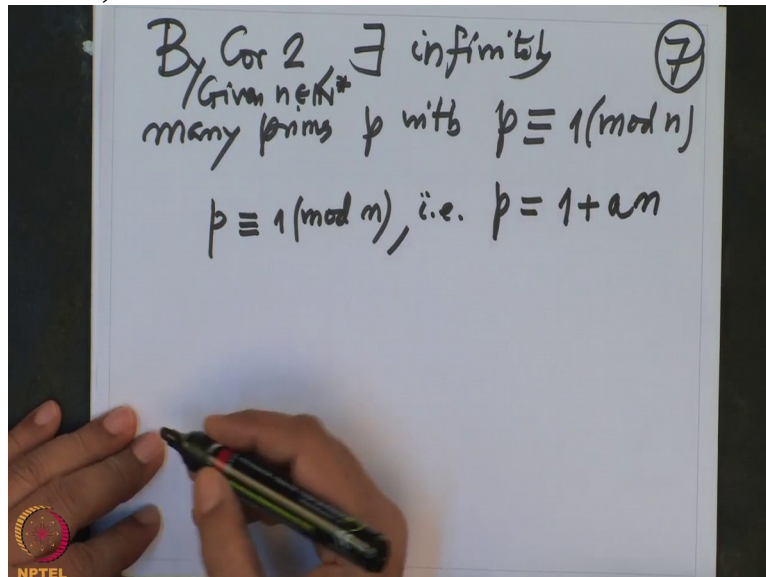 By Cor 2, ∃ infinitely
Given n∈ℕ*
many primes p with p ≡ 1 (mod n)
p ≡ 1 (mod n), i.e. p = 1 + an
7
NPTEL